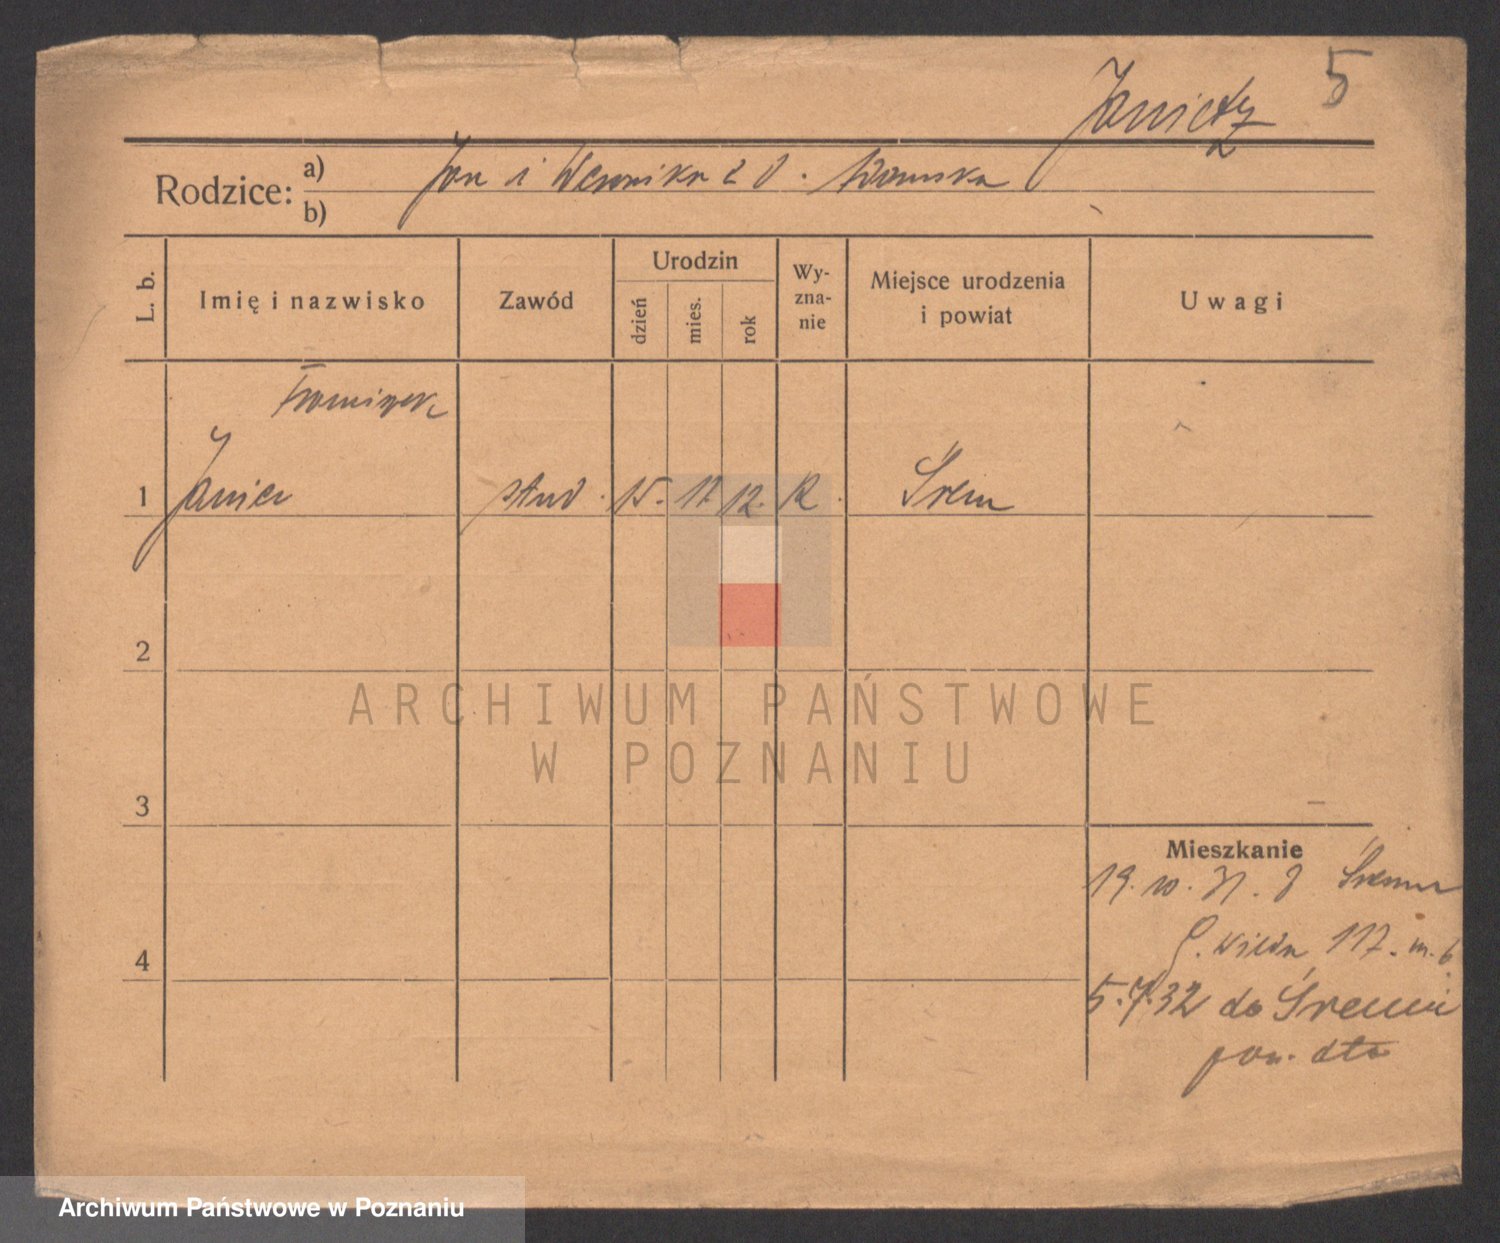 5
Rodzice: a) Jan i Weronika z d.
b)
L. b.
Imię i nazwisko
Zawód
Urodzin
dzień
mies.
rok
Wy-
zna-
nie
Miejsce urodzenia
i powiat
Uwagi
Franciszek
1 Janicz stud. 15. 12. R. Śrem
2
3
4
Mieszkanie
19. 10. 31. z Śremu
G. Wilda 117. m. 6
5.7.32 do Śremu
pow. dto
ARCHIWUM PAŃSTWOWE
W POZNANIU
Archiwum Państwowe w Poznaniu